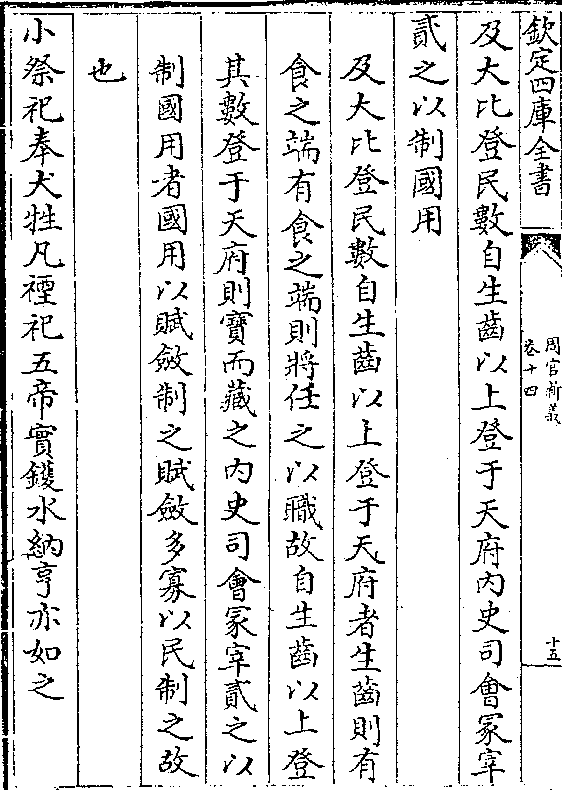 欽定四庫全書
周官新義
卷十四
十五
及大比登民數自生齒以上登于天府内史司會冢宰
貳之以制國用
及大比登民數自生齒以上登于天府者生齒則有
食之端有食之端則將任之以職故自生齒以上登
其數登于天府則寶而藏之内史司會冢宰貳之以
制國用者國用以賦斂制之賦斂多寡以民制之故
也
小祭祀奉犬牲凡禋祀五帝實鑊水納亨亦如之